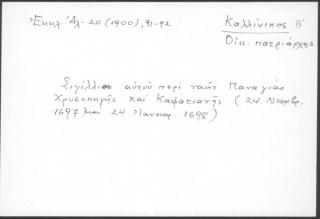 Ἐκκλ. Ἀλ. 20 (1900), 91-92
Καλλίνικος Β΄
Οἰκ. πατριάρχης
Σιγίλλιον αὐτοῦ περὶ ναῶν Παναγίας
Χρυσοπηγῆς καὶ Καφατιανῆς (24 Νοεμβρ.
1697 καὶ 24 Ἰανουαρ. 1698)